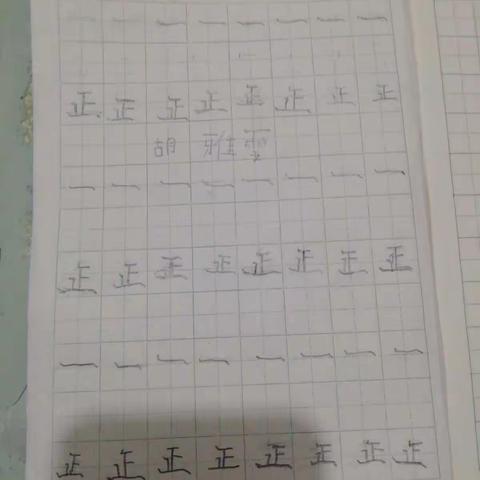 一 一 一 一 一 一
正 正 正 正 正 正 正 正
胡 雅雯
一 一 一 一 一 一 一 一
正 正 正 正 正 正 正 正
一 一 一 一 一 一 一 一
正 正 正 正 正 正 正 正